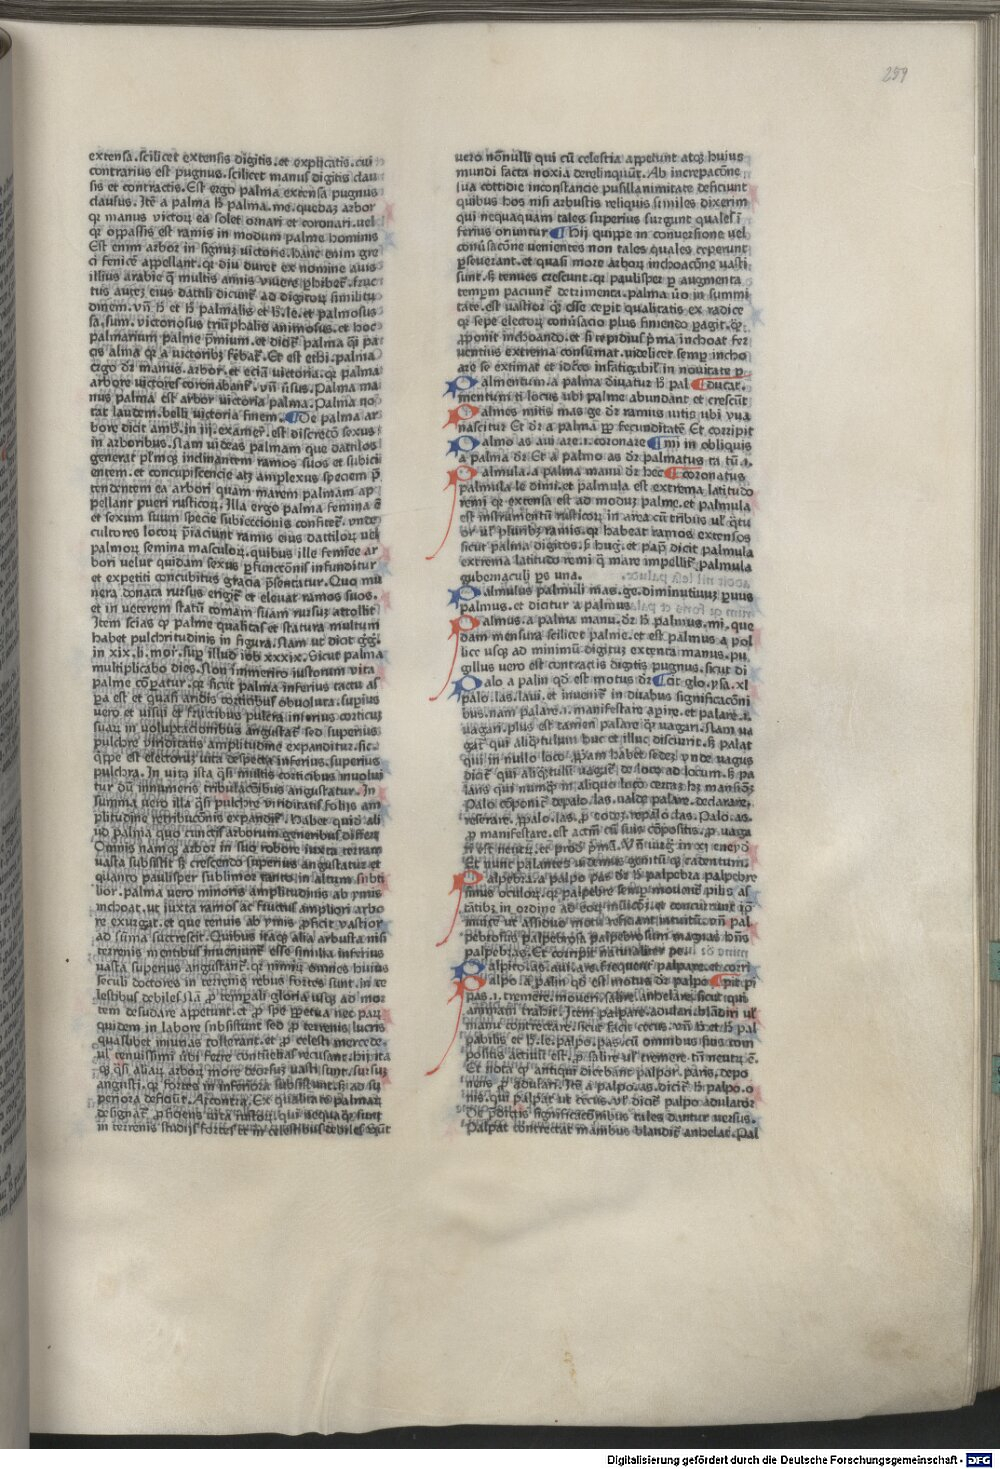 259
extensa. scilicet extensis digitis. et explicatis. cui
contrarius est pugnus. scilicet manus digitis clau
sis et contractis. Est ergo palma extensa pugnus
clausus. Itē a palma h̄ palma. me. quedaʒ arbor
qꝛ manus victoꝝ ea solet ornari et coronari. uel
qꝛ oppassis est ramis in modum palme hominis
Est enim arbor in signuʒ victorie. hanc enim gre
ci fenicē appellant. qꝛ diu duret ex nomine auis
illius arabie q̄ multis annis viuere ꝑhibet᷑. fruc
tus auteʒ eius dattili dicunt᷑ ad digitoꝝ similitu
dinem. vn̄ h̄ et h̄ palmalis et h̄. le. et palmosus
sa. sum. victoriosus triūphalis animosus. et hoc
palmarium palme p̄mium. et dicit᷑ palma q̄si pa
cis alma qꝛ a victoribʒ
ergo dꝛ manus. arbor. et eciā victoria. qꝛ palma
arbore victores coronabant᷑. vn̄ ūsus. Palma ma
nus palma est arbor victoria palma. Palma no
tat laudem. belli victoria finem. De palma ar
bore dicit amb. in iij. examer᷑. est discretꝰ sexus
in arboribus. Nam videas palmam que dattilos
generat pleꝝqʒ inclinantem ramos suos et subici
entem. et concupiscencie atqʒ amplexus speciem p̄
tendentem ea arbori quam marem palmam ap
pellant pueri rusticoꝝ. Illa ergo palma femina ē
et sexum suum specie subieccionis confitet᷑. vnde
cultores locoꝝ
palmoꝝ semina masculoꝝ. quibus ille femīee ar
bori velut quidam sexus ꝑfunctōnis infunditur
et expetiti concubitus gracia p̄sentatur. Quo mu
nere donata rursus erigit᷑ et eleuat ramos suos.
et in ueterem statū comam suam rursuʒ attollit
Item scias qꝙ palme qualitas et statura multum
habet pulchritudinis in figura. Nam ut dicit g̃g̃.
in xix. li. mor᷑. sup̱ illud iob xxxix. Sicut palma
multiplicabo dies. Non immerito iustorum vita
palme cōparatur. qꝛ sicut palma inferius tactu as
ꝑa est et quasi aridis corticibus obuoluta. sup̱ius
vero et uisui et fructibus pulcra inferius corticuʒ
suaꝝ in uoluptacionibus angustat᷑ sed superius
pulchre viriditatis amplitudine expanditur. sic
q̄ppe est electoruʒ uita despecta inferius. superius
pulchra. In vita ista q̄si multis corticibus inuolui
tur dū innumeris tribulacōibus angustatur. In
summa uero illa q̄si pulchre viriditatis folijs am
plitudine retribucōnis expandit᷑. Habet quid ali
ud palma quo cunctis arborum generibus differt
Omnis namqʒ arbor in suo robore iuxta terram
uasta subsistit sꝫ crescendo superius angustatur et
quanto paulisper sublimor tanto in altum subti
lior. palma uero minoris amplitudinis ab ymis
inchoat. ut iuxta ramos ac fructus ampliori arbo
re exurgat. et que tenuis ab ymis ꝓficit vastior
ad sūma succrescit. Quibus itaqʒ alia arbusta nisi
terrenis mentibus inueniunt᷑ esse similia inferius
uasta superius angustant᷑. qꝛ nimiꝝ omnes huius
seculi doctores in terrenis rebus fortes sunt. in ce
lestibus debiles. Nā ꝓ temp̱ali gloria usqʒ ad mor
tem desudare appetunt. et ꝓ spe ꝑpetua nec paꝝ
quidem in labore subsistunt sed ꝓ terrenis lucris
quaslibet iniurias tollerant. et ꝓ celesti mercede.
ul᷑ tenuissimi ūbi ferre contuelias recusant. hij ita
qʒ q̄si aliaꝝ arboꝝ more deorsuʒ uasti sunt. sursuʒ
angusti. qꝛ fortes in inferiora subsistunt. sꝫ ad su
periora deficiūt. Econtra. Ex qualitate palmaꝝ
designat᷑ ꝓficiens uita iustoꝝ. qui nequaqʒ sunt
in terrenis studijs fortes et in celestibus debiles. Sūt
vero nōnulli qui cū celestia appetunt atqʒ huius
mundi facta noxia derelinquūt. Ab increpacōne
sua cottidie inconstancie pusillanimitate deficiunt
quibus hos nisi arbustis reliquis similes dixerim
qui nequaquam tales superius surgunt quales ī
ferius oriuntur. Hij quippe in conuersione uel
conūsacōne uenientes non tales quales ceperunt
ꝑseuerant. et quasi more arboꝝ inchoacōne uasti
sunt. sꝫ tenues crescunt. qꝛ paulisper ꝑ augmenta
temp̱m paciunt᷑ detrimenta. palma ūo in summi
tate. est vastior qꝫ esse cepit qualitatis ex radice
qꝛ sepe electoꝝ conūsacio plus finiendo ꝑagit. qꝫ.
ꝓponit inchoando. et si tepidius p̄ma inchoat fer
uentius extrema consūmat. videlicet semp̱ incho
are se extimat et ideo infatigabiꝉ in nouitate ꝑ
Palmentum. a palma diriuatur h̄ pal ducat.
mentum ti locus ubi palme abundant et crescūt
Palmes mitis mas. ge dꝛ ramus uitis ubi vua
nascitur Et dꝛ a palma ꝓpꝑ fecunditatē Et corripit
Palmo as aui are. i. coronare mi in obliquis
a palma dꝛ Et a palmo as dꝛ palmatus ta tū. i.
Palmula. a palma manu dꝛ hec coronatus
palmula le dimi. et palmula est extrema latitudo
remi qꝛ extensa est ad moduʒ palme. et palmula
est instrumentū rusticoꝝ in area cū tribus ul᷑ q̄tu
or ul᷑ pluribʒ ramis. qꝛ habeat ramos extensos
sicut palma digitos. sꝫ hug᷑. et pap̄ dicit palmula
extrema latitudo remi q̄ mare impellit᷑. palmula
gubernaculi pars una.
Palmulus palmuli mas. ge. diminutiuuʒ ꝑuus
palmus. et diciatur a palmus
Palmus. a palma manu. dꝛ h̄ palmus. mi. que
dam mensura scilicet palme. et est palmus a pol
lice usqʒ ad minimū digituʒ extenta manus. pu
gillus uero est contractis digitis pugnus. sicut di
Palo a palin qd̄ est motus dꝛ cit glo. ysa. xl
palo. las. laui. et inuenit᷑ in duabus significacōni
bus. nam palare. i. manifestare apire. et palare. i.
uagari. plus est tamen palare qꝫ uagari. Nam ua
gat᷑ qui aliq̄ntulum huc et illuc discurrit. sꝫ palat᷑
qui in nullo loco ꝓpriam habet sedeʒ vnde uagus
dicit᷑ qui aliq̄ntulū uagat᷑ de loco ad locum. sꝫ pa
lans qui numqʒ in aliquo loco certaʒ hꝫ mansionē
Palo cōponit᷑ depalo. las. ualde palare. declarare,
reserare. ꝓpalo. las. ꝓ eodeʒ repalo. las. Palo. as.
ꝓ manifestare. est actm̄ cū suis cōpositis. ꝓ uaga
ri est neutꝝ. et prod᷑ p̄mā. Vn̄ uirg̃ in xi eneyd᷑
Et nunc palantes uidemus genitū qʒ cadentum.
Palpebra. a palpo pas dꝛ h̄ palpebra palpebre
sinus oculoꝝ. qꝛ palpebre semp̱ mouent᷑ pilis as
tātibʒ in ordine ad eoꝝ
inuicē ut assiduo motu reficiant intuitū. vn̄ pal
pebrosus palpebrosa palpebrosum magnas hn̄s
palpebras. Et corripit naturaliter pe.
Palpito. as. aui. are. frequent᷑ palpare. et corri
Palpo. a palin qd̄ est motus dꝛ palpo pit pi
pas. i. tremere. moueri. salire. anhelare. sicut qui
animam trahit. Item palpare. adulari. blādiri ul᷑
manu contrectare. sicut facit cecus. vn̄ h̄ et h̄ pal
pabilis et h̄. le. palpo. pas. cū omnibus suis com
positis actiuū est. ꝓ salire ul᷑ tremere tn̄ neutꝝ ē.
Et nota qꝙ antiqui dicebant palpor. paris. depo
nens ꝓ adulari. Itē a palpo. as. dicit᷑ h̄ palpo. o
nis. qui palpat ut cecus. vl᷑ dicit᷑ palpo adulator
De p̄dictis significacōnibus tales dantur uersus.
Palpat contrectat manibus blandit᷑ anhelat. Pal
Digitalisierung gefördert durch die Deutsche Forschungsgemeinschaft - DFG